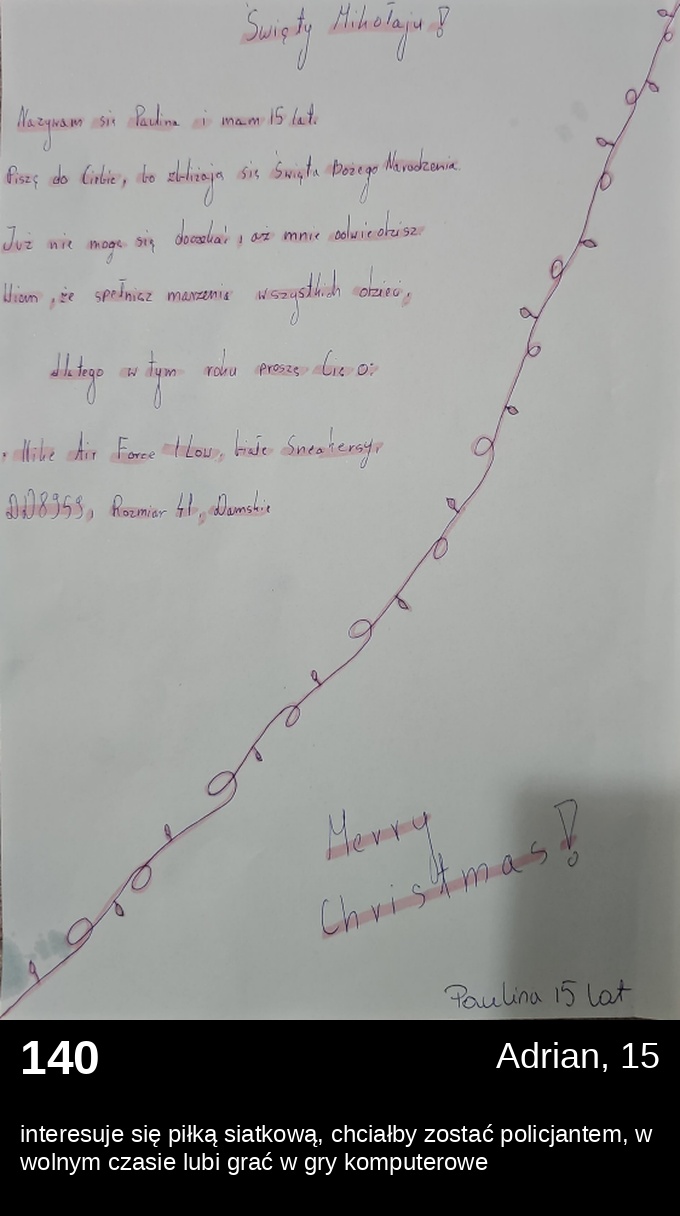 Święty Mikołaju!
Nazywam się Paulina i mam 15 lat.
Piszę do Ciebie, bo zbliżają się Święta Bożego Narodzenia.
Już nie mogę się doczekać, aż mnie odwiedzisz.
Wiem, że spełnisz marzenia wszystkich dzieci,
dlatego w tym roku proszę Cię o:
• Nike Air Force 1 Low, białe Sneakersy,
DD8959, Rozmiar 41, Damskie
Merry
Christmas!
Paulina 15 lat
140
Adrian, 15
interesuje się piłką siatkową, chciałby zostać policjantem, w
wolnym czasie lubi grać w gry komputerowe